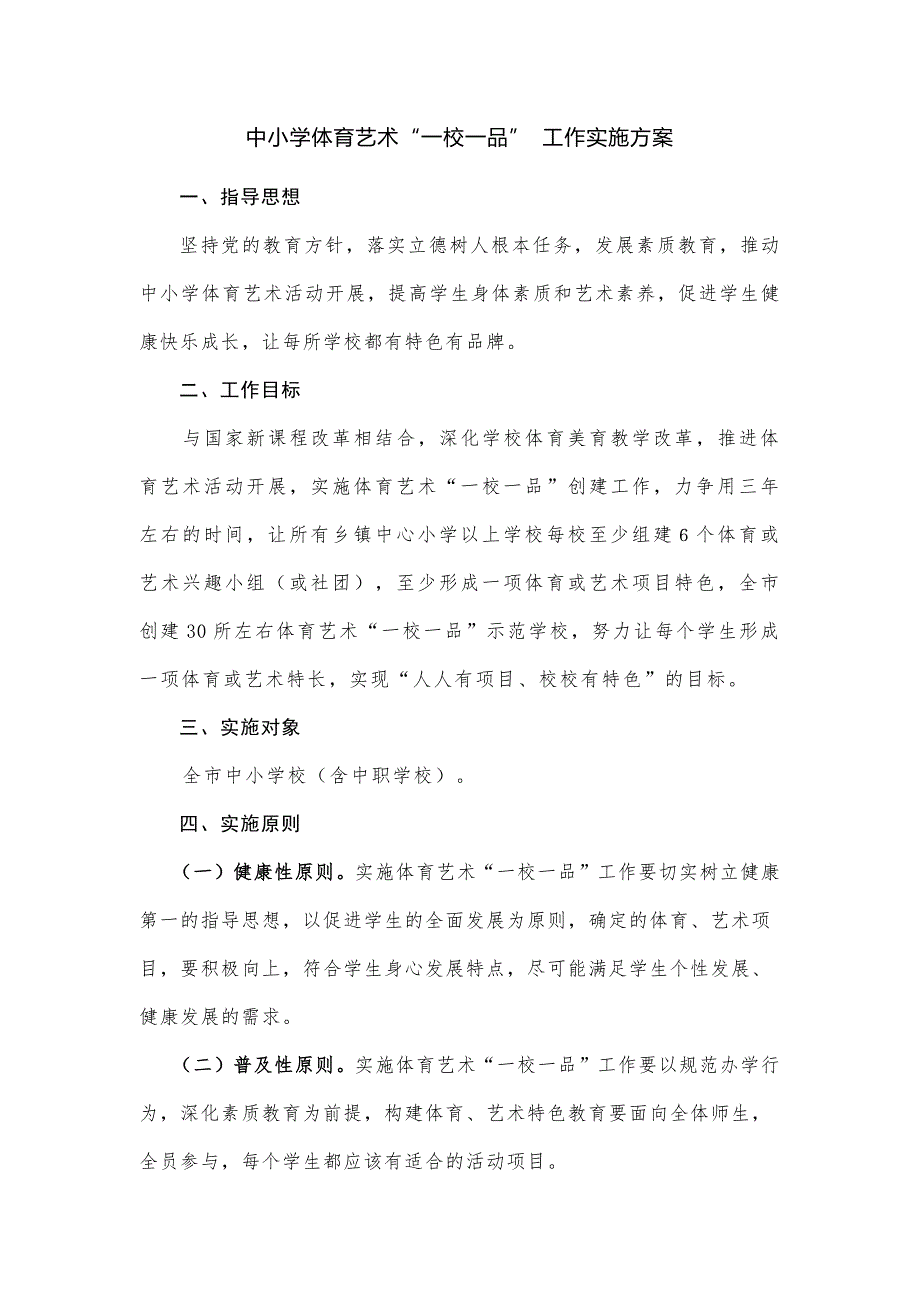 中小学体育艺术“一校一品” 工作实施方案
一、指导思想
坚持党的教育方针，落实立德树人根本任务，发展素质教育，推动
中小学体育艺术活动开展，提高学生身体素质和艺术素养，促进学生健
康快乐成长，让每所学校都有特色有品牌。
二、工作目标
与国家新课程改革相结合，深化学校体育美育教学改革，推进体
育艺术活动开展，实施体育艺术“一校一品”创建工作，力争用三年
左右的时间，让所有乡镇中心小学以上学校每校至少组建 6 个体育或
艺术兴趣小组（或社团），至少形成一项体育或艺术项目特色，全市
创建 30 所左右体育艺术“一校一品”示范学校，努力让每个学生形成
一项体育或艺术特长，实现“人人有项目、校校有特色”的目标。
三、实施对象
全市中小学校（含中职学校）。
四、实施原则
（一）健康性原则。实施体育艺术“一校一品”工作要切实树立健康
第一的指导思想，以促进学生的全面发展为原则，确定的体育、艺术项
目，要积极向上，符合学生身心发展特点，尽可能满足学生个性发展、
健康发展的需求。
（二）普及性原则。实施体育艺术“一校一品”工作要以规范办学行
为，深化素质教育为前提，构建体育、艺术特色教育要面向全体师生，
全员参与，每个学生都应该有适合的活动项目。